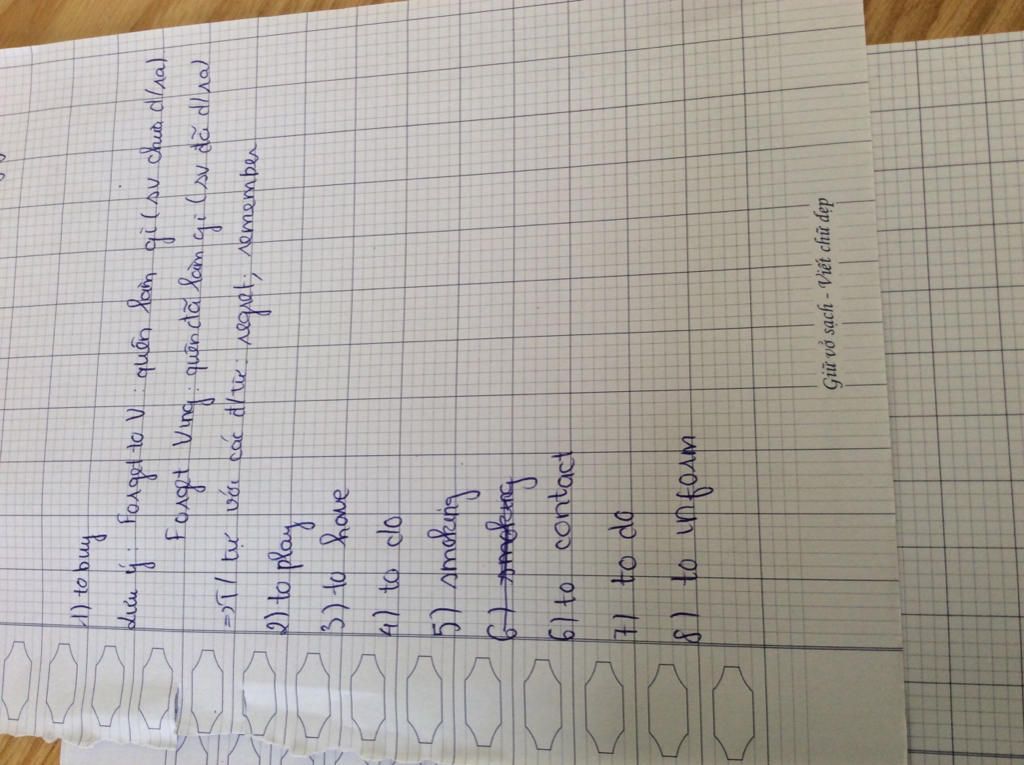 1) to buy
Lưu ý: Forget to V: quên làm gì (sv chưa d/ra)
Forget Ving: quên đã làm gì (sv đã d/ra)
=> T/ tự với các đ/từ: regret, remember
2) to play
3) to have
4) to do
5) smoking
6) smoking
6) to contact
7) to do
8) to inform
Giữ vở sạch - Viết chữ đẹp